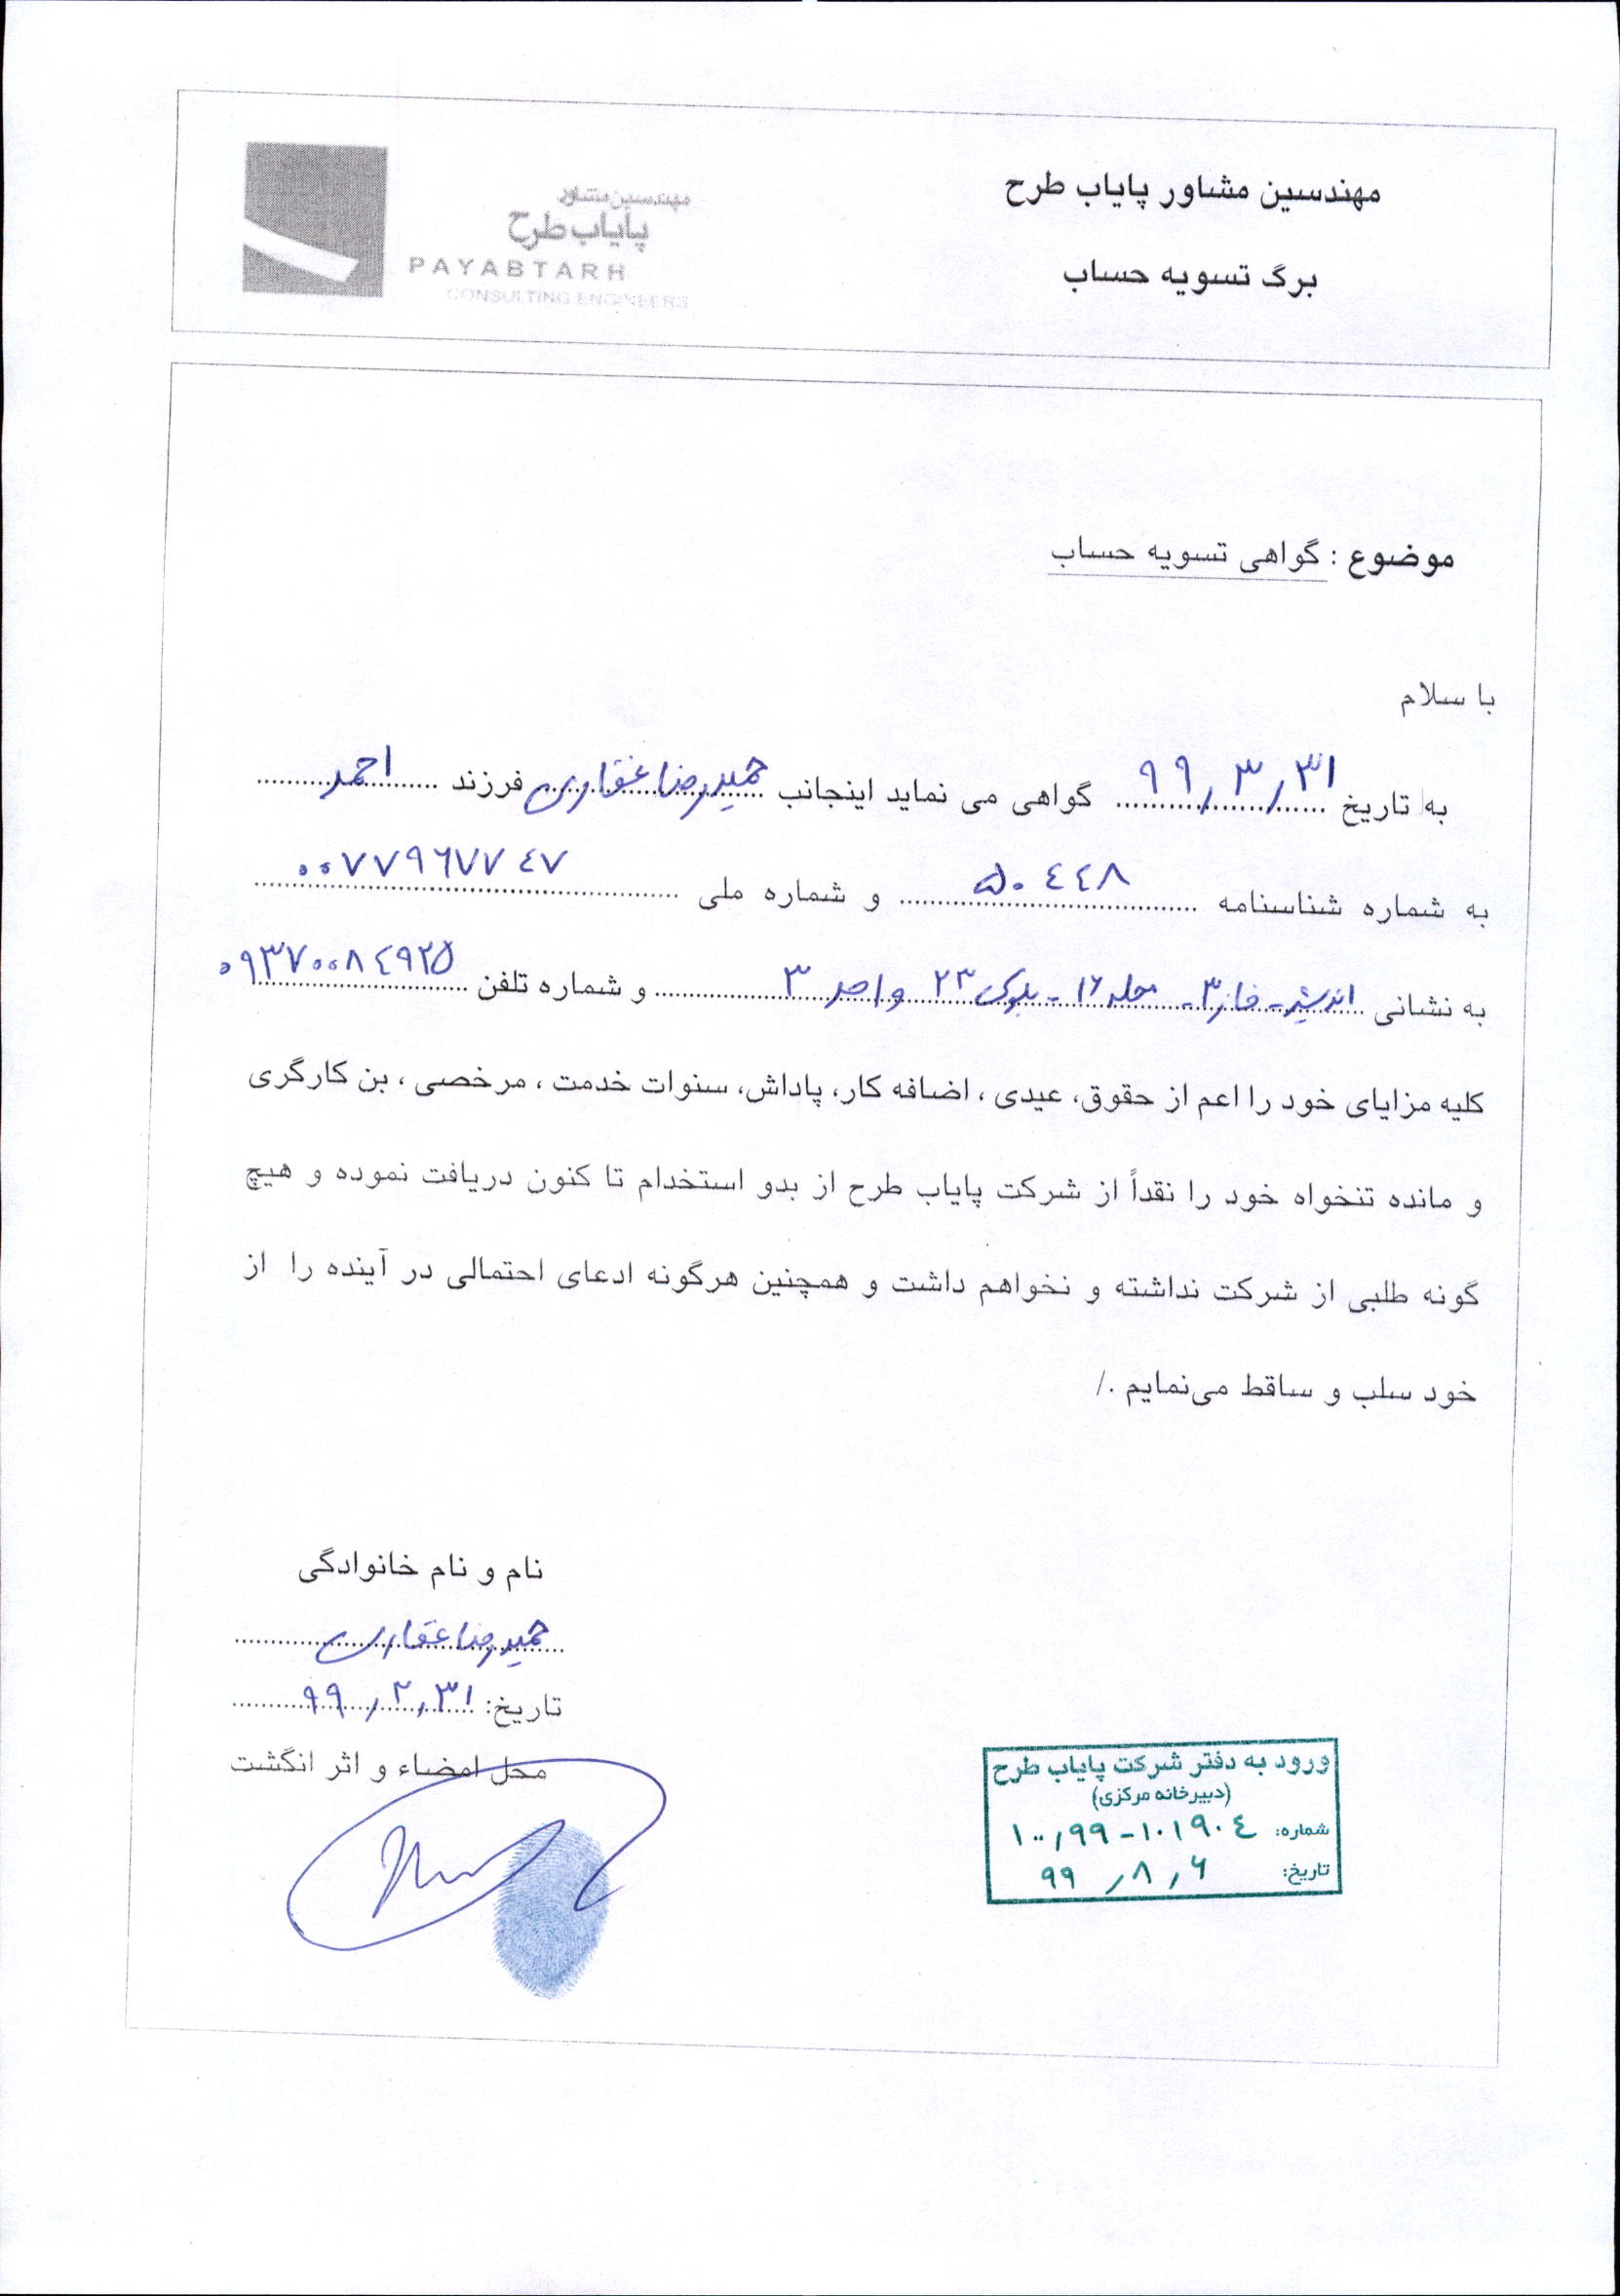 مهندسین مشاور پایاب طرح
برگ تسویه حساب
مهندسین مشاور
پایاب طرح
PAYABTARH
CONSULTING ENGINEERS
موضوع : گواهی تسویه حساب
با سلام
به تاریخ ۹۹/۳/۳۱ گواهی می نماید اینجانب حمیدرضا غفاری فرزند احمد
به شماره شناسنامه ۵۰۴۴۸ و شماره ملی ۰۰۷۷۹۶۷۷۴۷
به نشانی اندیشه - فاز ۳ - محله ۱۶ - بلوک ۲۳ واحد ۳ و شماره تلفن ۰۹۳۷۰۰۸۴۹۲۵
کلیه مزایای خود را اعم از حقوق، عیدی ، اضافه کار، پاداش، سنوات خدمت ، مرخصی ، بن کارگری
و مانده تنخواه خود را نقداً از شرکت پایاب طرح از بدو استخدام تا کنون دریافت نموده و هیچ
گونه طلبی از شرکت نداشته و نخواهم داشت و همچنین هرگونه ادعای احتمالی در آینده را از
خود سلب و ساقط می‌نمایم ./
نام و نام خانوادگی
حمیدرضا غفاری
تاریخ: ۹۹/۳/۳۱
محل امضاء و اثر انگشت
ورود به دفتر شرکت پایاب طرح
(دبیرخانه مرکزی)
شماره: ۱۰۰/۹۹-۱۰۱۹۰۴
تاریخ: ۹۹/۸/۶